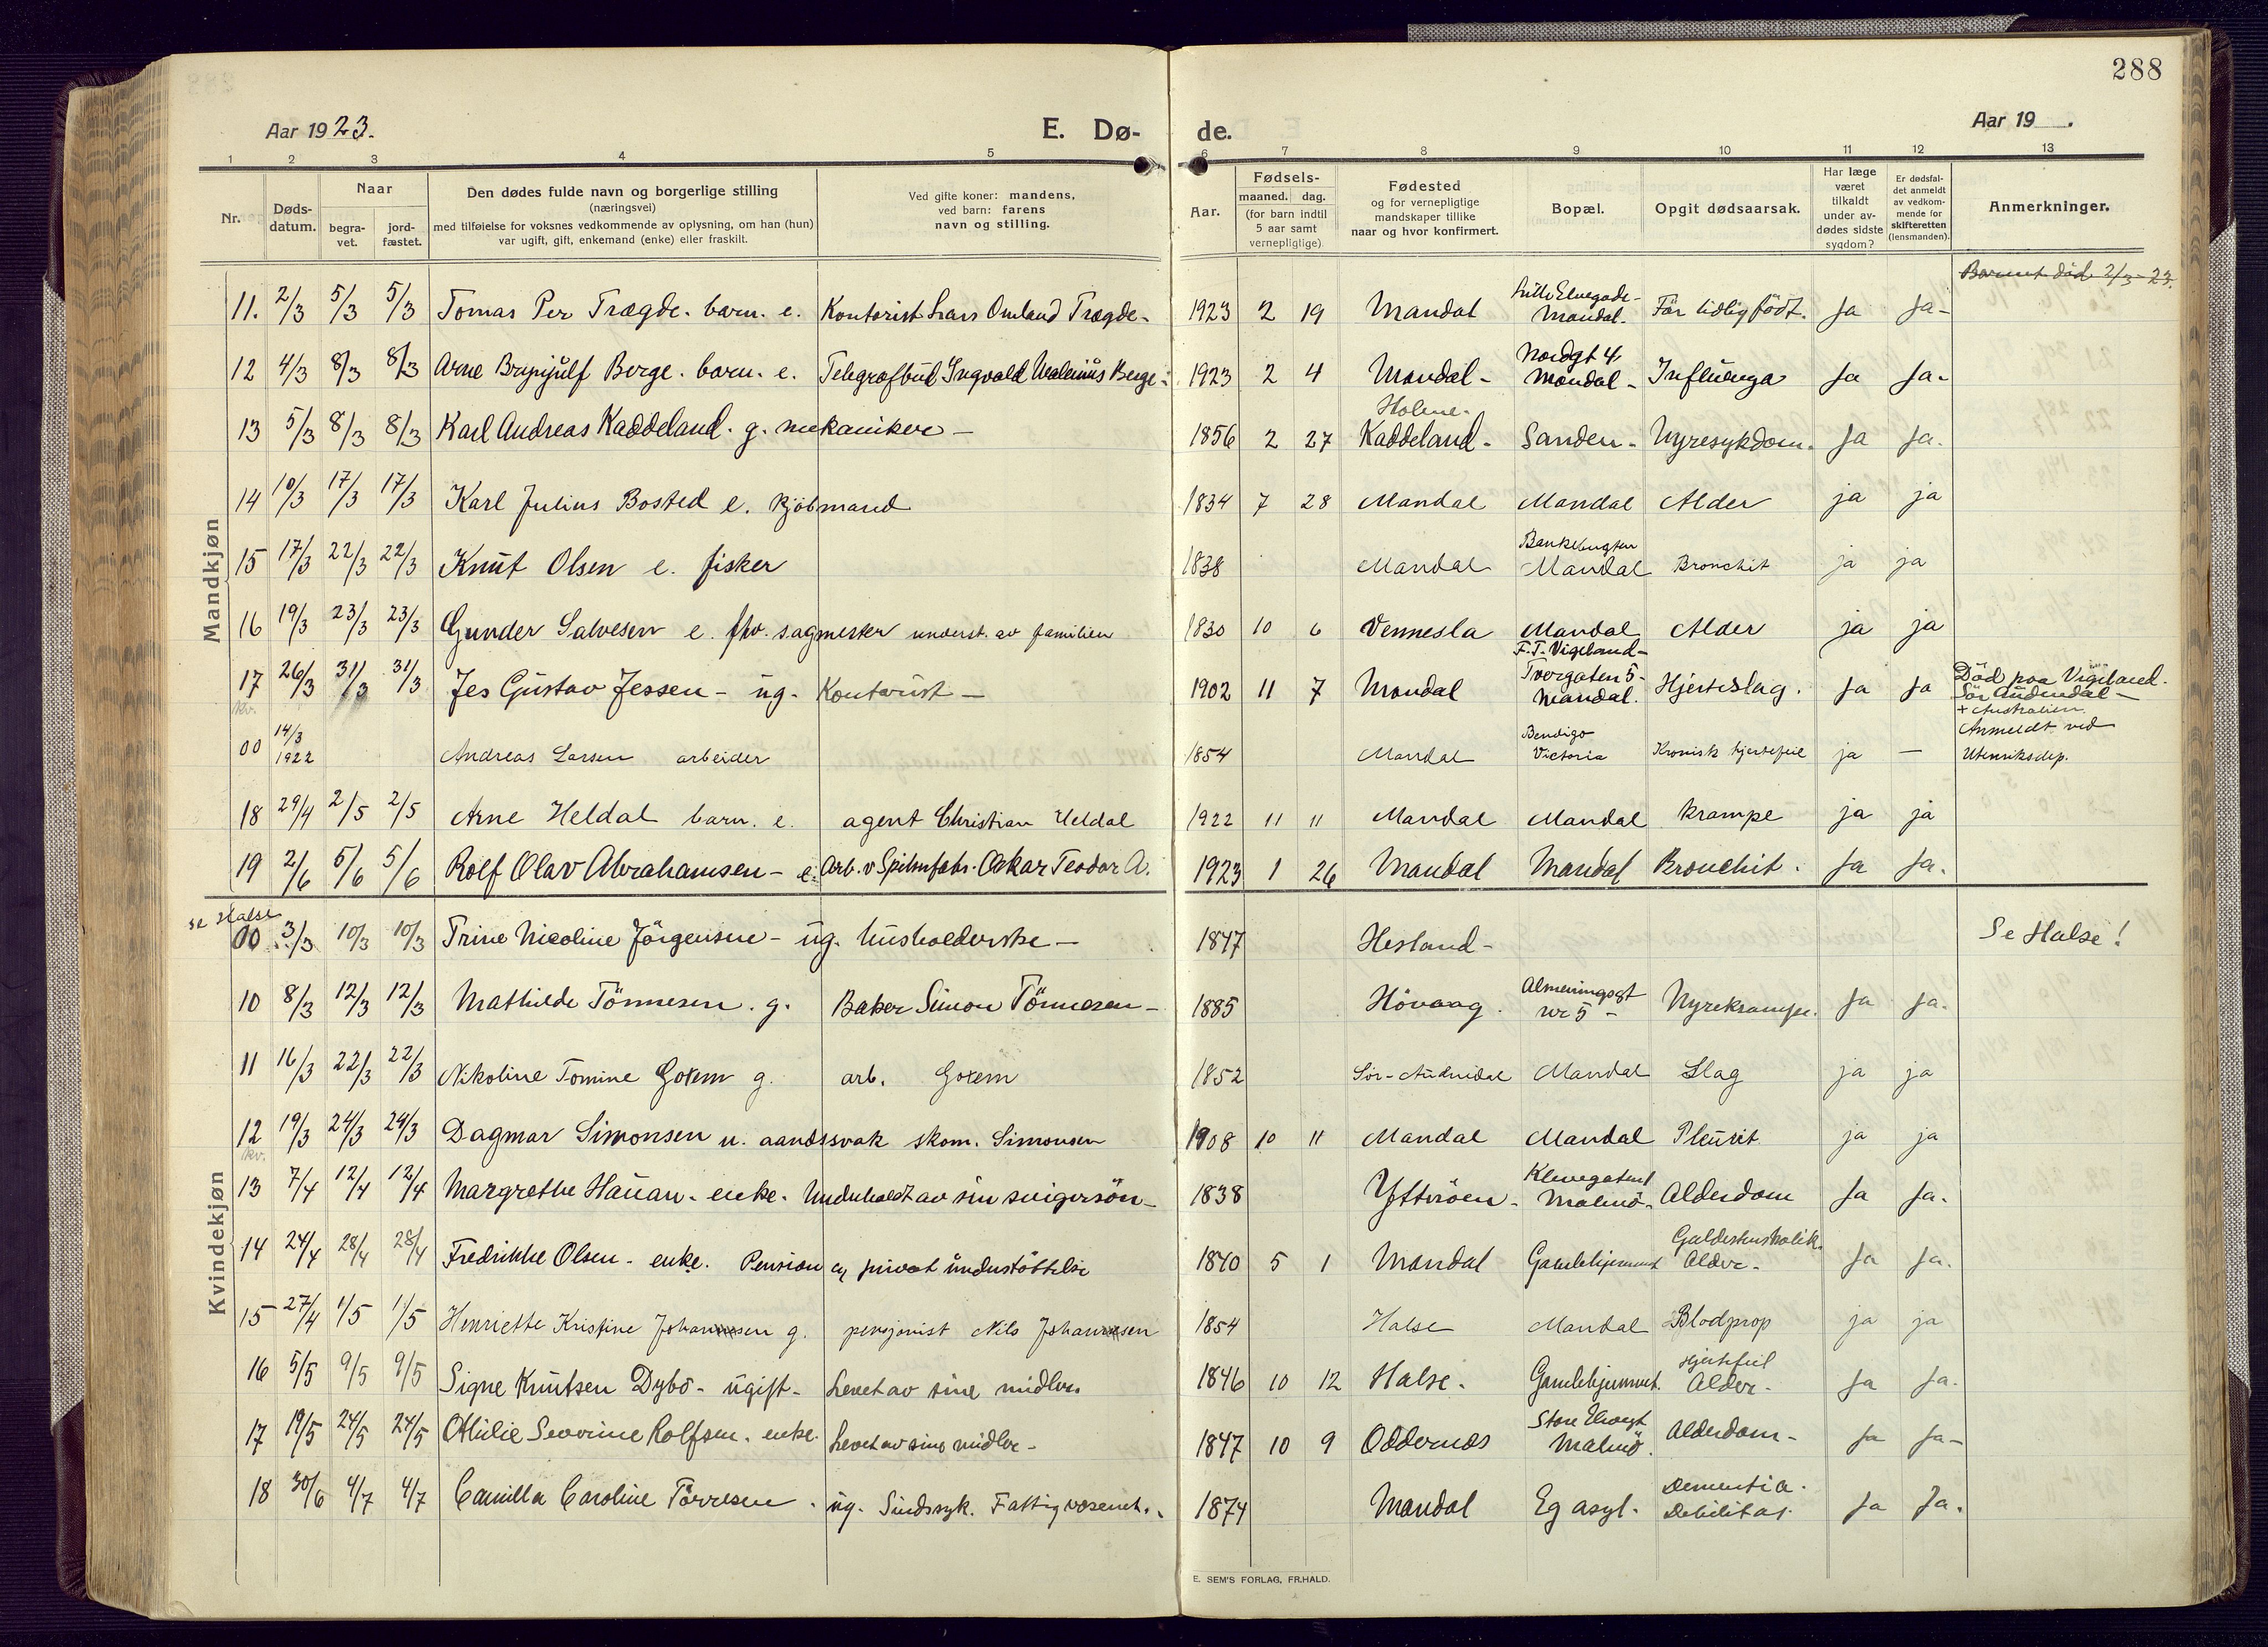 288
Aar 1923.
E. Dø-
de.
Aar 19 .
1 2 3 4 5 6 7 8 9 10 11 12 13
Nr.
Døds-
datum.
Naar
begra-
vet.
jord-
fæstet.
Den dødes fulde navn og borgerlige stilling
(næringsvei)
med tilføielse for voksnes vedkommende av oplysning, om han (hun)
var ugift, gift, enkemand (enke) eller fraskilt.
Ved gifte koner: mandens,
ved barn: farens
navn og stilling.
Aar.
Fødsels-
maaned. dag.
(for barn indtil
5 aar samt
vernepligtige)
Fødested
og for vernepligtige
mandskaper tillike
naar og hvor konfirmert.
Bopæl.
Opgit dødsaarsak.
Har læge
været
tilkaldt
under av-
dødes sidste
sygdom?
Er dødsfal-
det anmeldt
av vedkom-
mende for
skifteretten
(lensmanden).
Anmerkninger.
Mandkjøn
Barnet död 2/3-23.
Lille Elvegade-
11. 2/3 5/3 5/3 Tomas Per Trægde. barn. e. Kontorist Lars Omland Trægde- 1923 2 19 Mandal Mandal. För tidlig födt. Ja Ja-
Nordgt 4
12 4/3 8/3 8/3 Arne Brynjulf Berge. barn. e. Telegrafbud Ingvald Berge- 1923 2 4 Mandal- Mandal- Influenza Ja Ja-
Holme-
13 5/3 8/3 8/3 Karl Andreas Kaddeland. g. mekaniker- 1856 2 27 Kaddeland- Sanden- Nyresykdom. Ja Ja.
14 10/3 17/3 17/3 Karl Julius Bosted e. kjöbmand 1834 7 28 Mandal Mandal Alder ja ja
Bankebugten
15 17/3 22/3 22/3 Knut Olsen e. fisker 1838 Mandal Mandal Bronchit ja ja
16 19/3 23/3 23/3 Gunder Salvesen e. fhv. sagmester underst. av familien 1830 10 6 Vennesla Mandal Alder ja ja
F.T. Vigeland-
Tvergaten 5-
17 26/3 31/3 31/3 Jes Gustav Jessen- ug. Kontorist- 1902 11 7 Mandal Mandal. Hjerteslag. Ja Ja Död paa Vigeland.
kv.
Sör Audnedal-
+ Australien.
00 14/3 1922 Andreas Larsen arbeider 1854 Mandal Bendigo Victoria Kronisk hjertefeil ja - Anmeldt ved
Utenriksdep.
18 29/4 2/5 2/5 Arne Heldal barn. e. agent Christian Heldal 1922 11 11 Mandal Mandal Krampe ja ja
19 2/6 5/6 5/6 Rolf Olav Abrahamsen- e. Arb. v Spilnfabr. Oskar Teodor A. 1923 1 26 Mandal Mandal Bronchit. Ja Ja.
Kvindekjøn
se Halse
00 3/3 10/3 10/3 Trine Nicoline Jörgensen- ug. husholderske- 1847 Hesland- Se Halse!
10 8/3 12/3 12/3 Mathilde Tönnesen. g. Baker Simon Tönnesen- 1885 Hövaag. Almenningsgt nr 5- Nyrekrampe. Ja Ja.
11 16/3 22/3 22/3 Nikoline Tomine Goxem g. arb. Goxem 1852 Sör-Audnedal Mandal Slag ja ja
12 19/3 24/3 24/3 Dagmar Simonsen u. aandssvak skom. Simonsen 1908 10 11 Mandal Mandal Pleurit. ja ja
kv.
13 7/4 12/4 12/4 Margrethe Hauan- enke. Underholdt av sin svigersön- 1838 Ytteröen- Malmö- Alderdom Ja Ja.
Galdestenskolik.
14 24/4 28/4 28/4 Fredrikke Olsen- enke. Pension og privat understöttelse 1840 5 1 Mandal Gamlehjemmet Alder- Ja Ja.
15 27/4 1/5 1/5 Henriette Kristine Johannesen g. pensjonist Nils Johannesen 1854 Halse Mandal Blodprop ja ja
Hjertefeil
16 5/5 9/5 9/5 Signe Knutsen Dybo- ugift- Levet av sine midler. 1846 10 12 Halse- Gamlehjemmet. Alder- Ja Ja.
Store Elvegt
17 19/5 24/5 24/5 Otilie Severine Rolfsen. enke. Levet av sine midler- 1847 10 9 Oddernes Malmö. Alderdom- Ja Ja-
Dementia.
18 30/6 4/7 4/7 Camilla Caroline Törresen. ug. Sindssyk. Fattigvæsenet. 1874 Mandal Eg asyl. Debilitas. Ja Ja.
E. SEM'S FORLAG, FR.HALD.